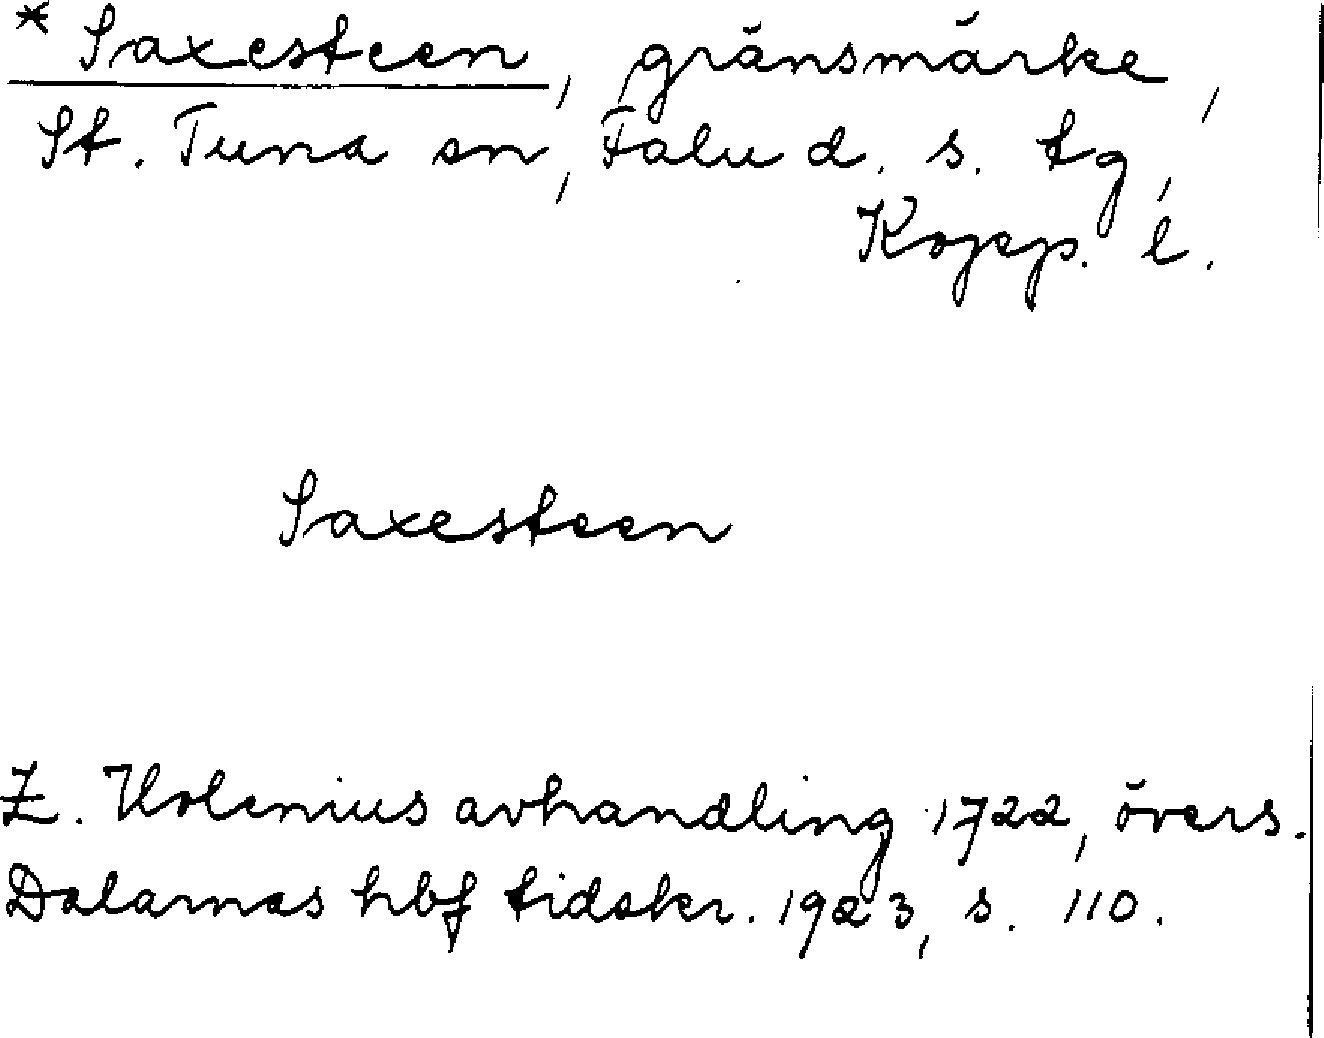 * Saxesteen, gränsmärke,
St. Tuna sn, Falu d. s. tg,
Kopp. l.
Saxesteen
Z. Holenius avhandling 1722, övers.
Dalarnas hbf tidskr. 1923, s. 110.